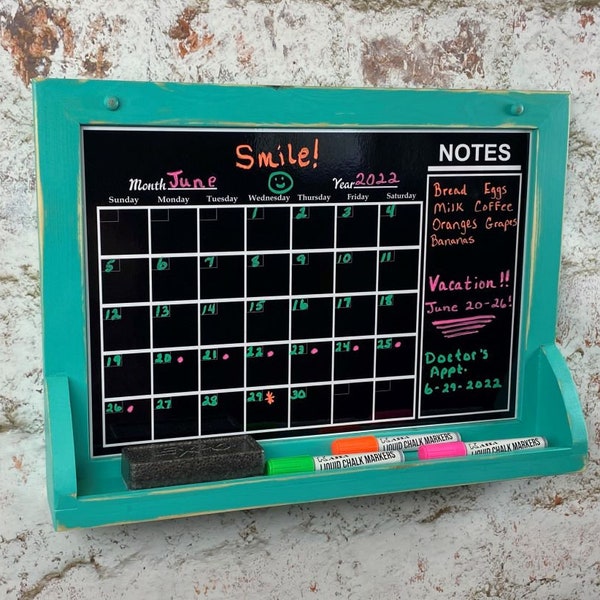 Smile!
Month June Year 2022
Sunday Monday Tuesday Wednesday Thursday Friday Saturday
1 2 3 4
5 6 7 8 9 10 11
12 13 14 15 16 17 18
19 20 21 22 23 24 25
26 27 28 29 * 30
NOTES
Bread Eggs
Milk Coffee
Oranges Grapes
Bananas
Vacation!!
June 20-26!
Doctor's
Appt.
6-29-2022
LIQUID CHALK MARKERS
LIQUID CHALK MARKERS
LIQUID CHALK MARKERS